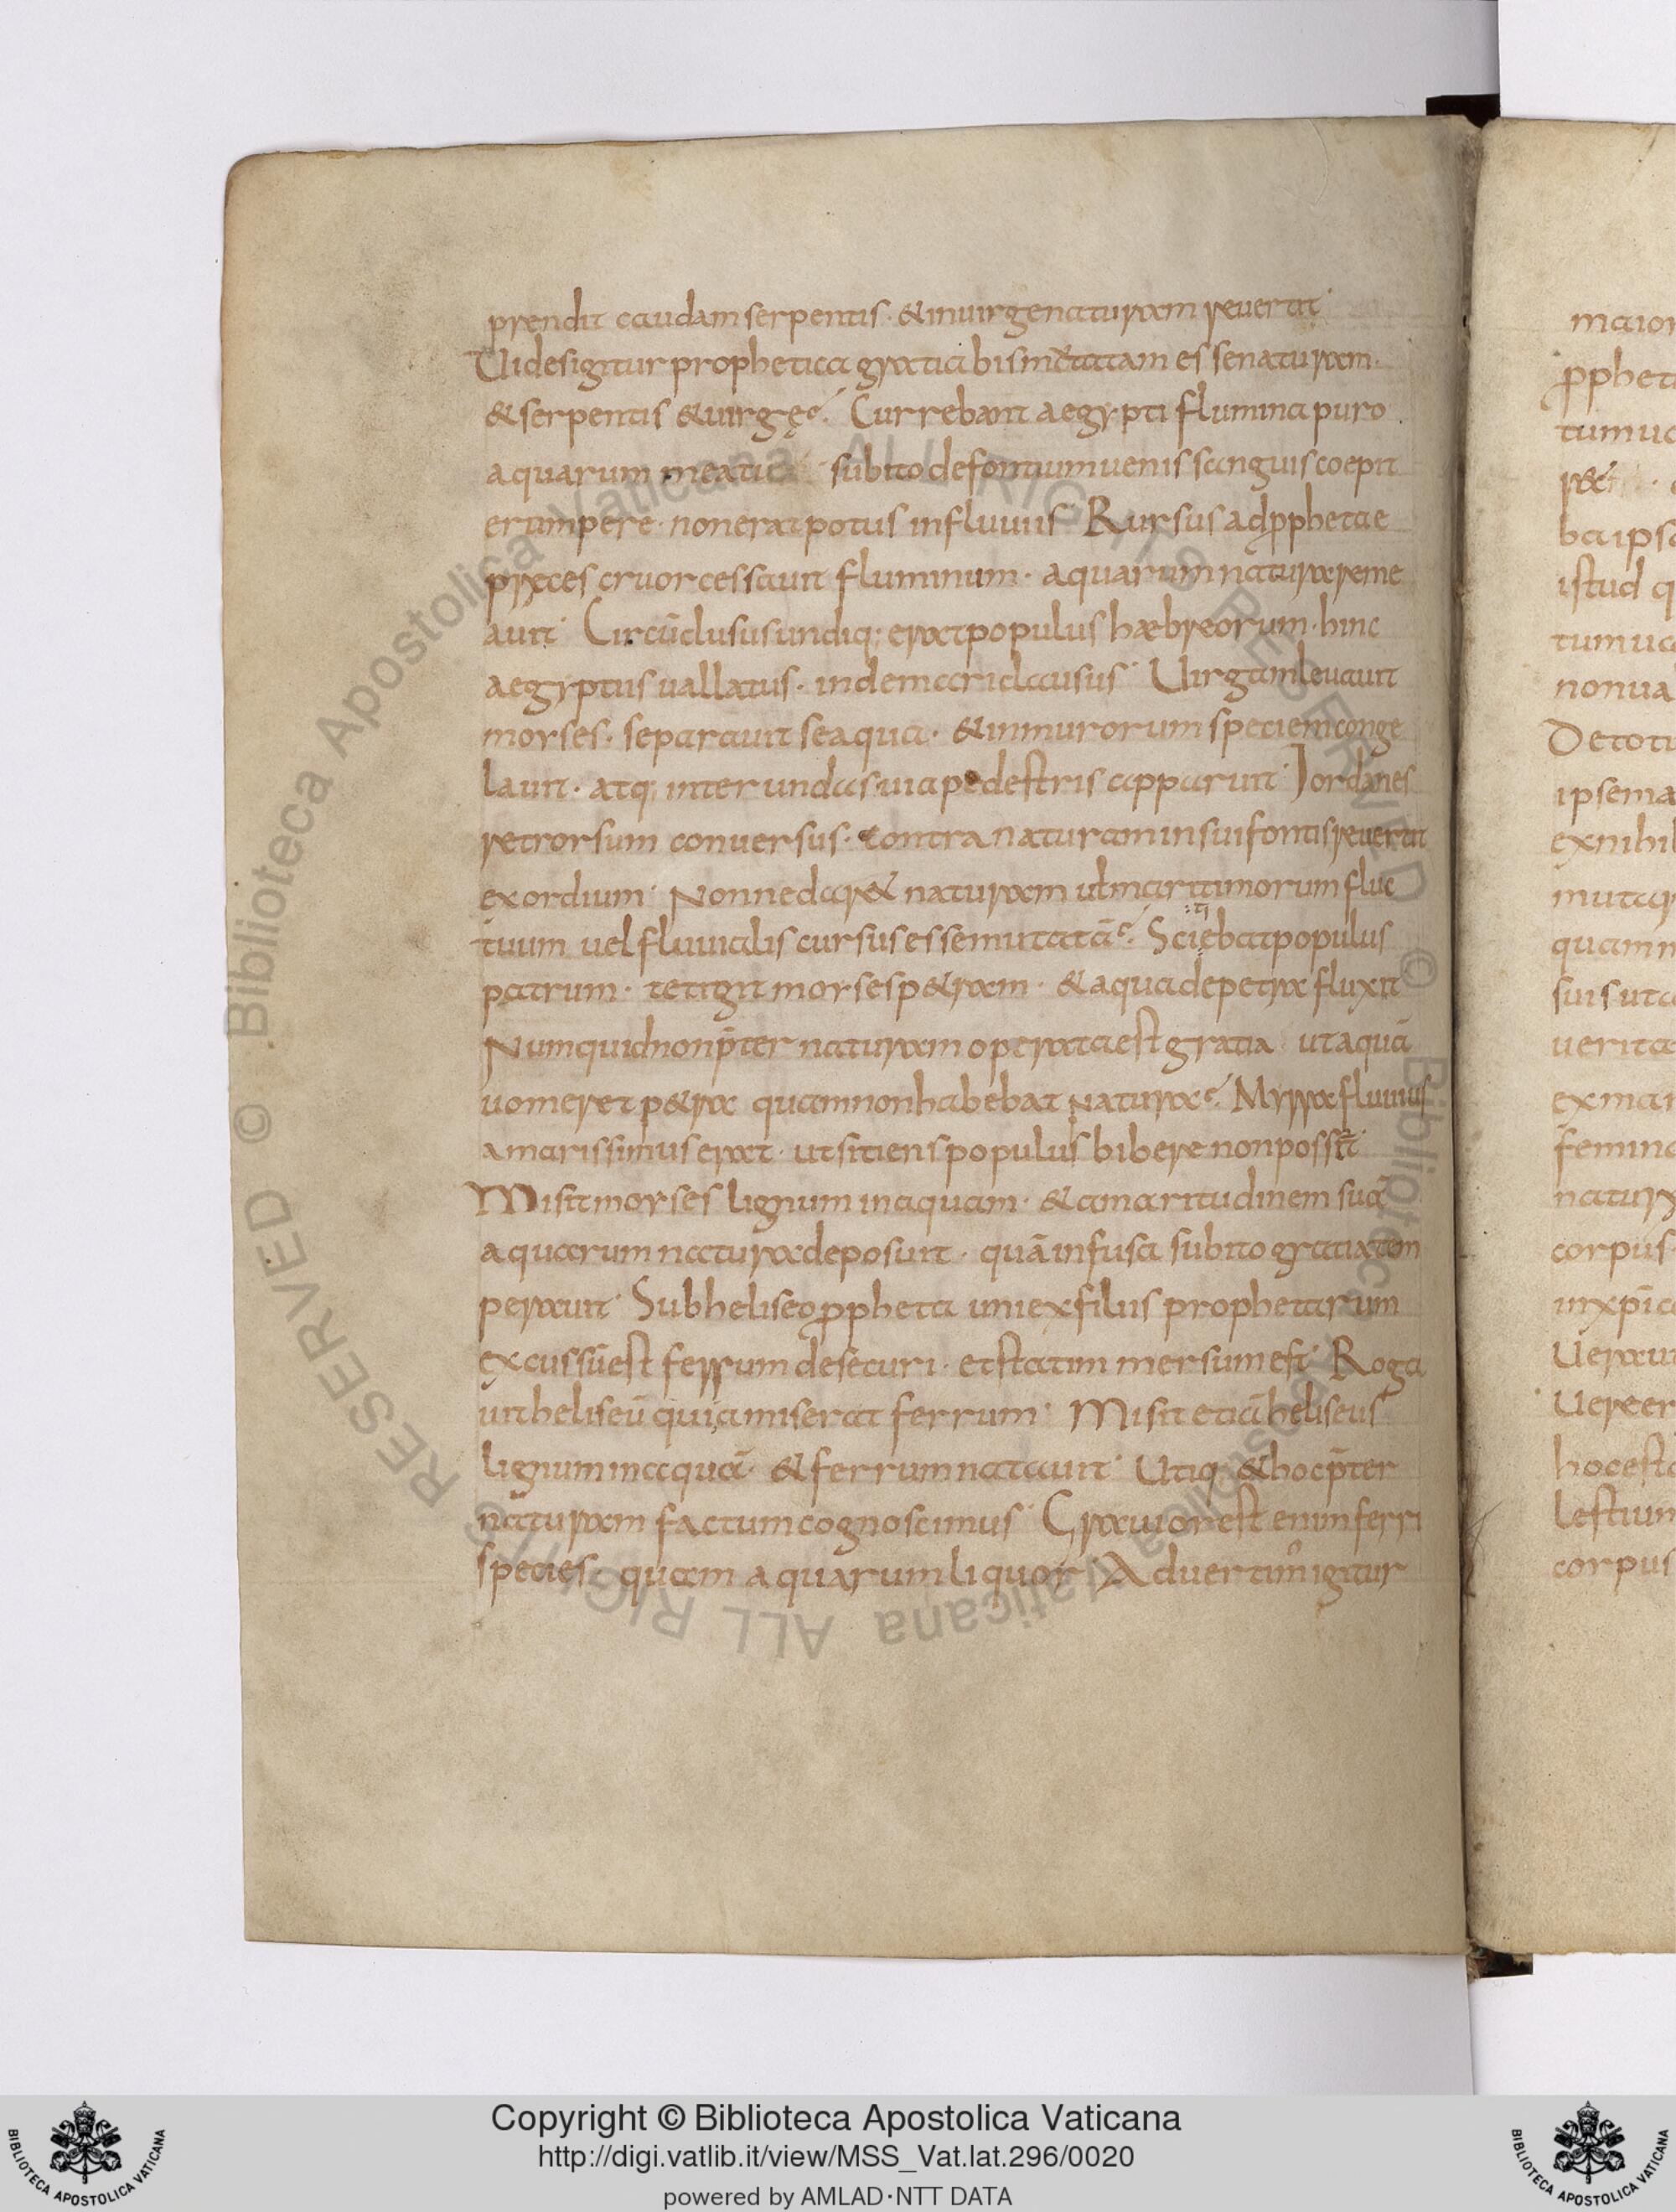 prendit caudam serpentis · & in uirge naturam reuertit·
Uides igitur prophetica gratia bis mutatam esse naturam·
& serpentis & uirgę? Currebant aegypti flumina puro
aquarum meatu · subito de fontium uenis sanguis coepit
erumpere · non erat potus in fluuiis· Rursus ad pphetae
preces cruor cessauit fluminum · aquarum natura reme
auit· Circūclusus undiq; erat populus hæbreorum · hinc
aegyptiis uallatus · inde mari clausus· Uirgam leuauit
moyses · separauit se aqua · & in murorum speciem conge
lauit · atq; inter undas uia pedestris apparuit· Jordanes
retrorsum conuersus · contra naturam in sui fontis reuertit
exordium· Nonne claret naturam uel maritimorum fluc
tuum uel fluuialis cursus esse mutatā? Sciebat populus
patrum · tetigit moyses p&ram · & aqua de petra fluxit
Numquid non p̄ter naturam operata est gratia ut aquā
uomeret p&ra quam non habebat natura? Myrra fluuius
amarissimus erat · ut sitiens populus bibere non possit·
Misit moyses lignum in aquam · & amaritudinem suā
aquarum natura deposuit · quā infusa subito gratia tem
perauit· Sub heliseo ppheta uni ex filiis prophetarum
excussū est ferrum de securi · et statim mersum est· Roga
uit heliseū qui amiserat ferrum· Misit etiā heliseus
lignum in aquā· & ferrum natauit· Utiq; & hoc p̄ter
naturam factum cognoscimus· Grauior est enim ferri
species · quam aquarum liquor· Aduertim' igitur
maior
pphet
tum ua
ba ips
istud q
tum ua
non ua
De toti
ipse ma
ex nihil
muta
quam n
suis uta
uerita
ex mar
femina
natur
corpus
in xp̄i c
Uera
Uere er
hoc est
lestium
corpus
© Biblioteca Apostolica Vaticana ALL RIGHTS RESERVED © Biblioteca Apostolica Vaticana ALL RIGHTS RESERVED
BIBLIOTECA APOSTOLICA VATICANA
Copyright © Biblioteca Apostolica Vaticana
http://digi.vatlib.it/view/MSS_Vat.lat.296/0020
powered by AMLAD·NTT DATA
BIBLIOTECA APOSTOLICA VATICANA